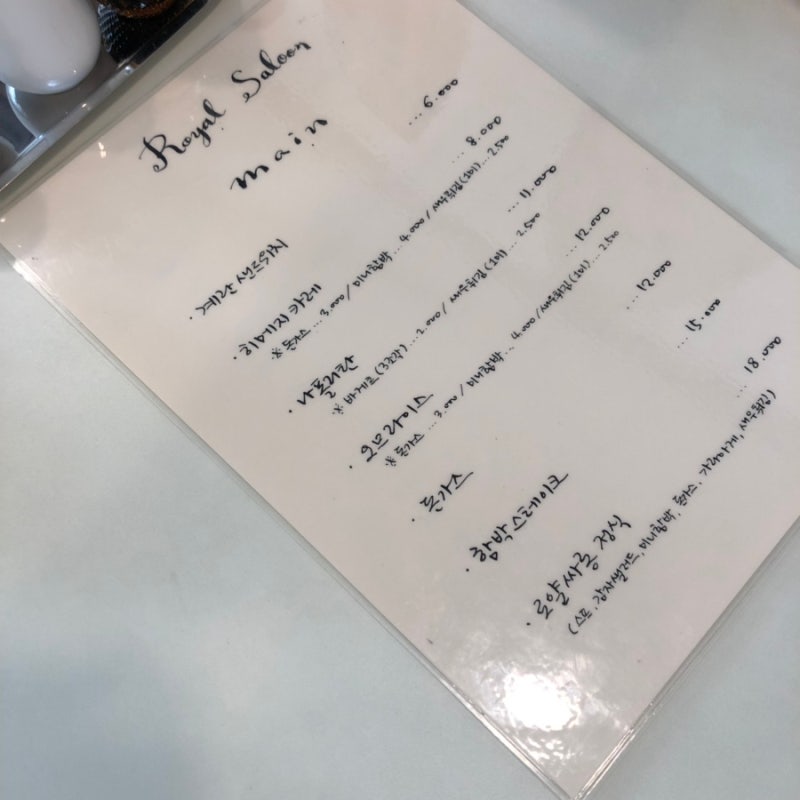 Royal Saloon
main
· 계란 샌드위치 ... 6.000
· 히메지 카레 ... 8.000
※ 돈가스 ... 3.000 / 미니함박 ... 4.000 / 새우튀김(1미) ... 2.500
· 나폴리탄 ... 11.000
※ 바게트(3조각) ... 2.000 / 새우튀김(1미) ... 2.500
· 오므라이스 ... 12.000
※ 돈가스 ... 3.000 / 미니함박 ... 4.000 / 새우튀김(1미) ... 2.500
· 돈가스 ... 12.000
· 함박스테이크 ... 15.000
· 로얄싸롱 정식 ... 18.000
(스프, 감자샐러드, 미니함박, 돈가스, 가라아게, 새우튀김)